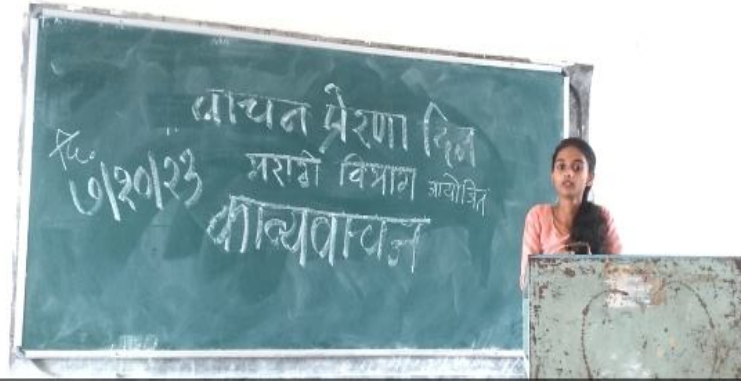 वाचन प्रेरणा दिन
दि.
७/१०/२३
मराठी विभाग आयोजित
काव्यवाचन